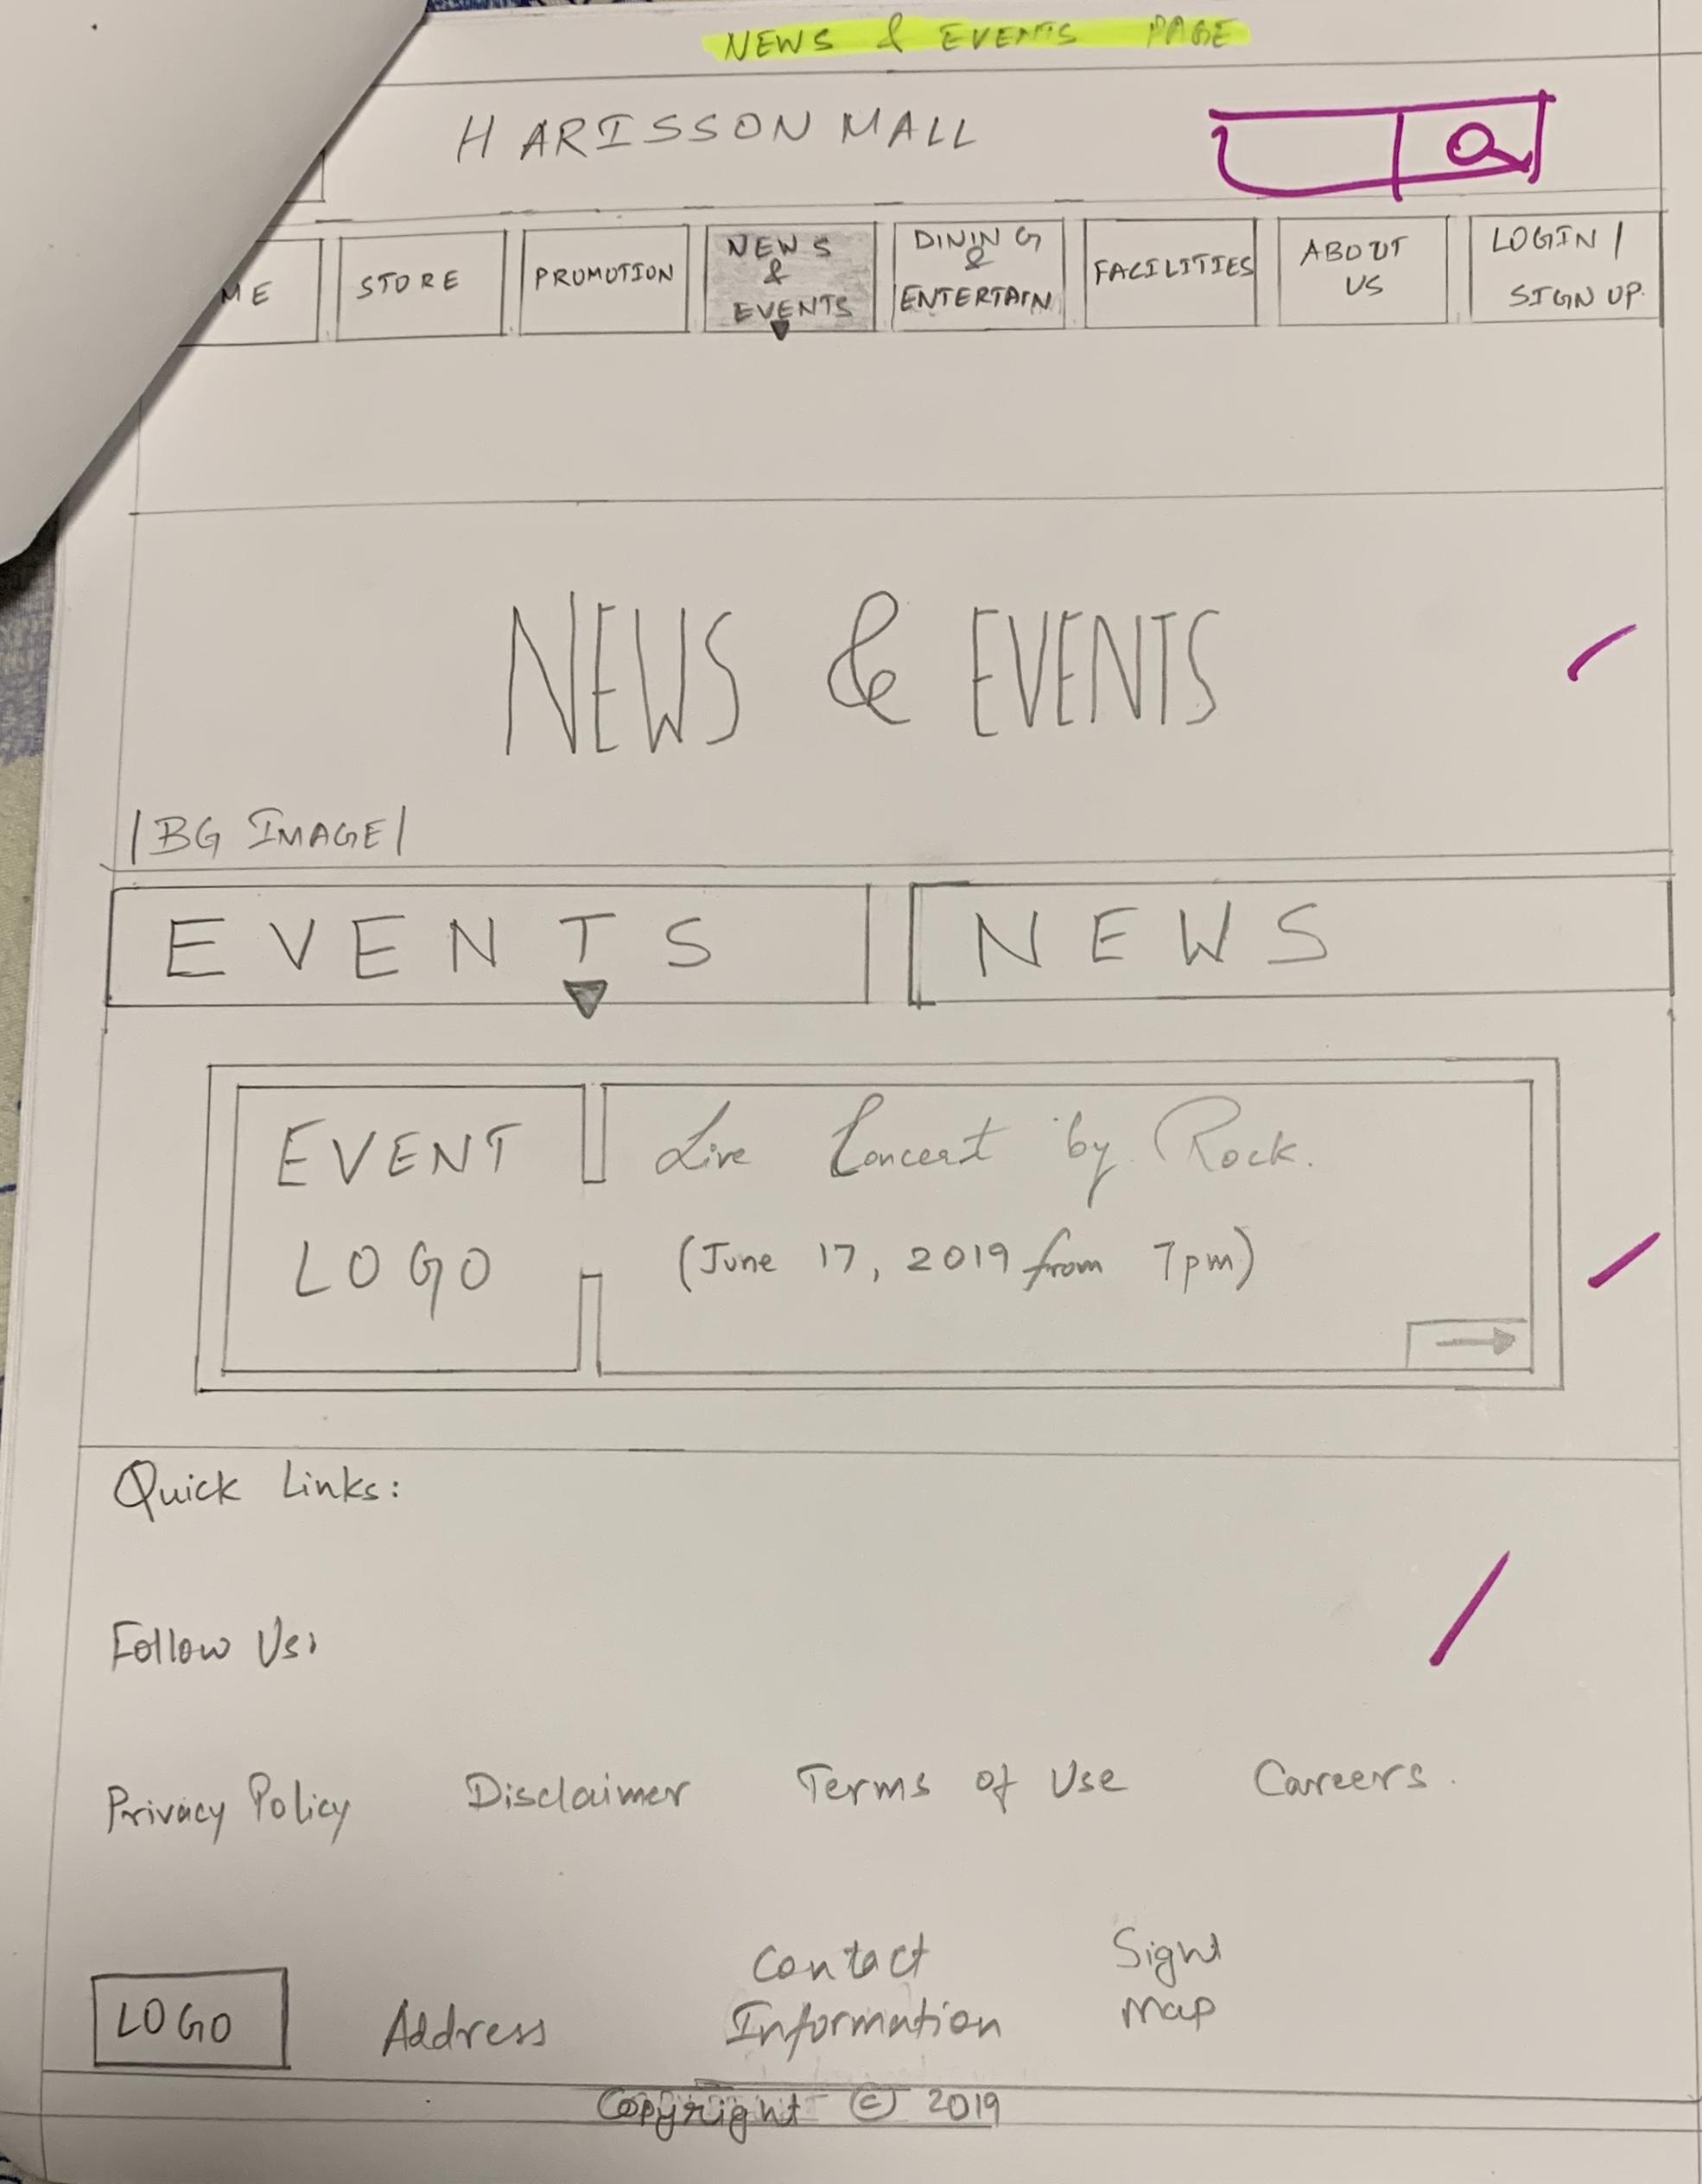 NEWS & EVENTS PAGE
HARISSON MALL
ME
STORE
PROMOTION
NEWS
&
EVENTS
DINING
&
ENTERTAIN
FACILITIES
ABOUT
US
LOGIN /
SIGN UP.
NEWS & EVENTS
|BG IMAGE|
EVENTS
NEWS
EVENT
LOGO
Live Concert by Rock.
(June 17, 2019 from 7pm)
Quick Links:
Follow Us:
Privacy Policy Disclaimer Terms of Use Careers.
LOGO
Address
Contact
Information
Sight
Map
Copyright © 2019